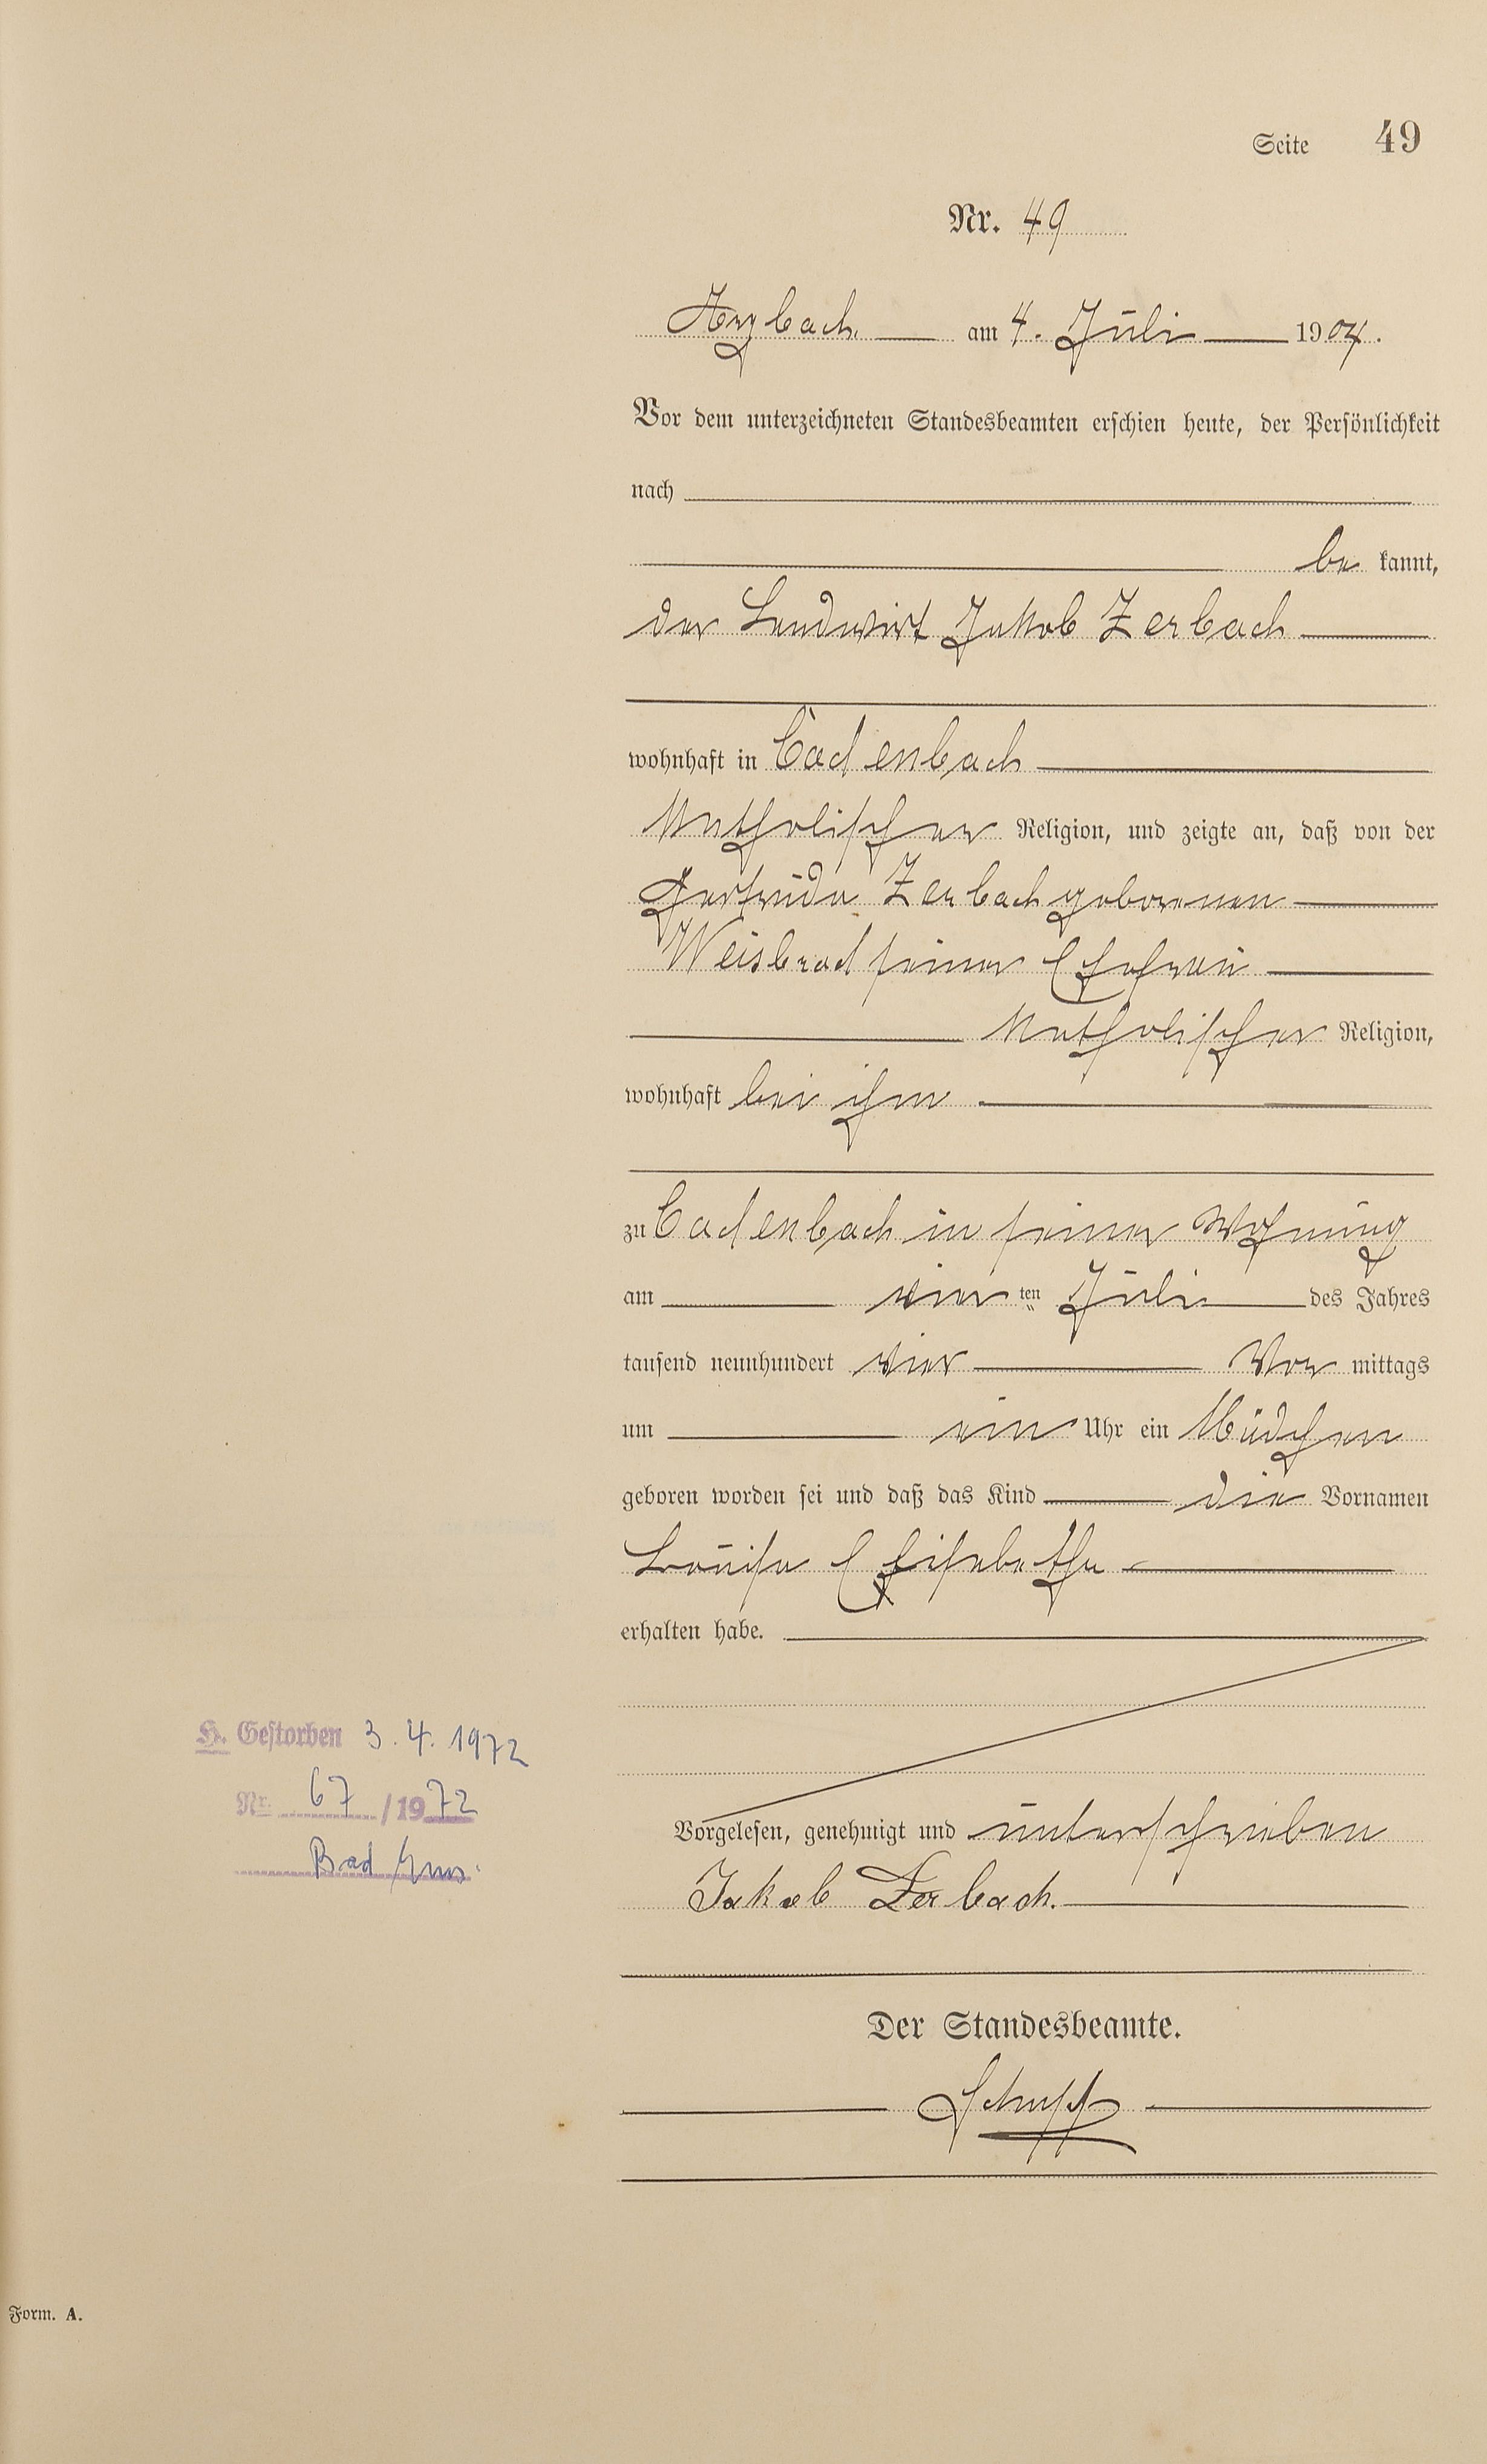 Seite 49
Nr. 49
Arzbach. am 4. Juli 1904.
Vor dem unterzeichneten Standesbeamten erschien heute, der Persönlichkeit
nach
be kannt,
der Landwirt Jakob Zerbach
wohnhaft in Cadenbach
katholischer Religion, und zeigte an, daß von der
Gertruda Zerbach geborenen
Weisbrod seiner Ehefrau
katholischer Religion,
wohnhaft bei ihm
zu Cadenbach in seiner Wohnung
am vier ten Juli des Jahres
tausend neunhundert vier Vor mittags
um ein Uhr ein Mädchen
geboren worden sei und daß das Kind die Vornamen
Louisa Elisabetha
erhalten habe.
H. Gestorben 3. 4. 1972
Nr. 67 / 1972
Bad Ems.
Vorgelesen, genehmigt und unterschrieben
Jakob Zerbach.
Der Standesbeamte.
Form. A.